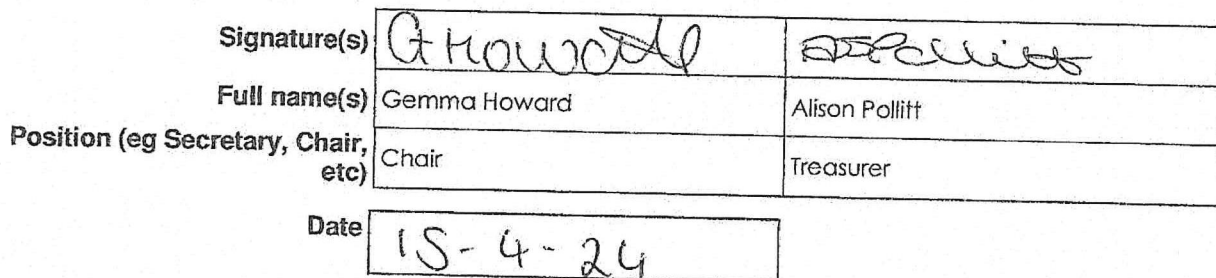 Signature(s) GHoward APollitt
Full name(s) Gemma Howard Alison Pollitt
Position (eg Secretary, Chair, etc) Chair Treasurer
Date 15-4-24